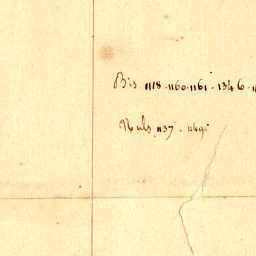 Bis 1118. 1160. 1161. 1346. 1
Nuls 1137. 1169.